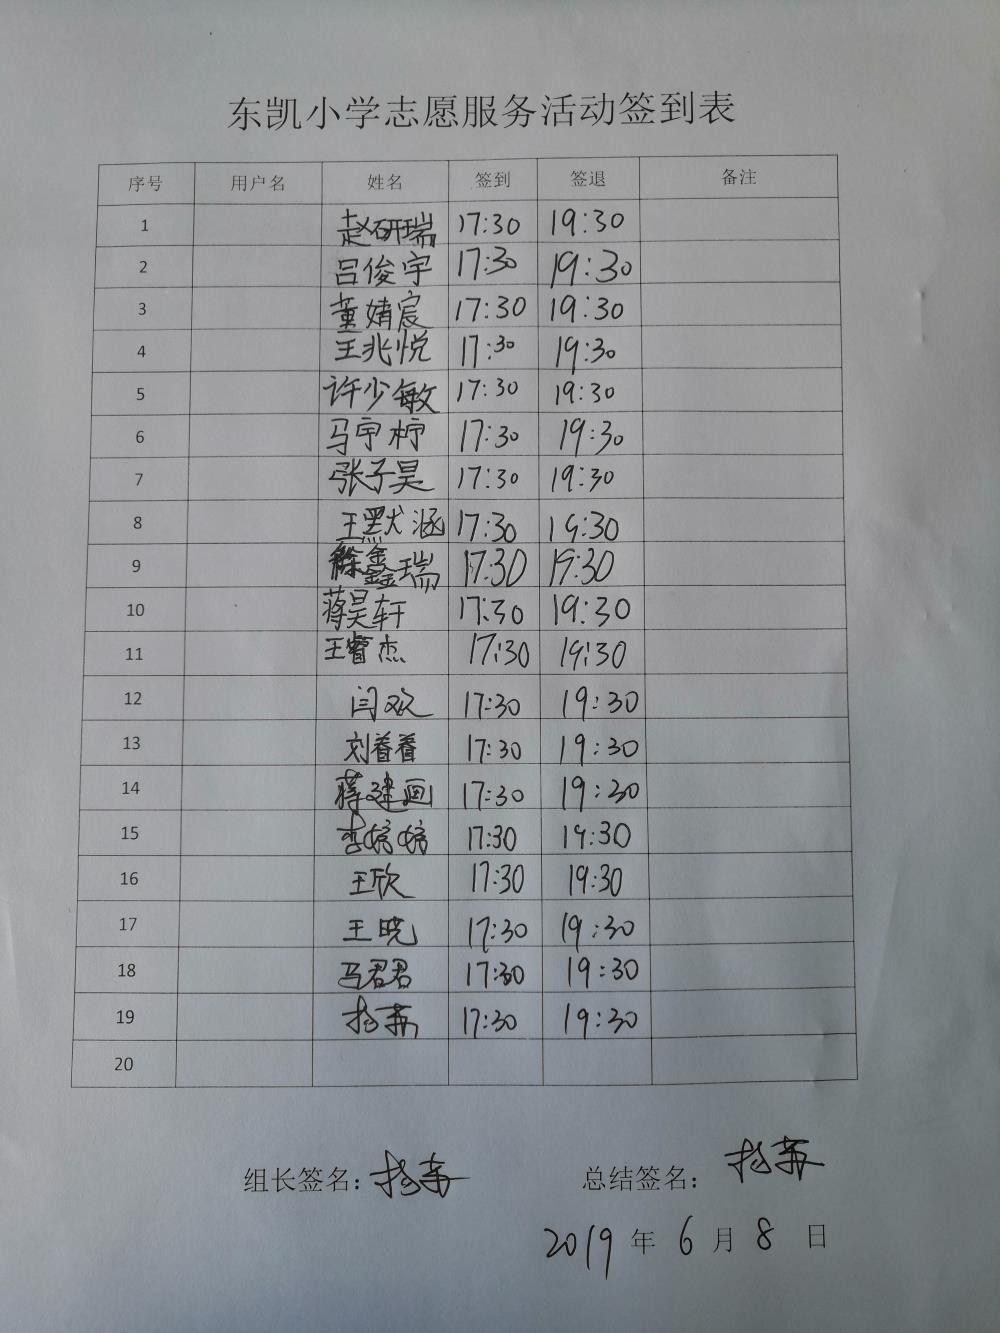 东凯小学志愿服务活动签到表
序号 用户名 姓名 签到 签退 备注
1 赵研瑞 17:30 19:30
2 吕俊宇 17:30 19:30
3 董婧宸 17:30 19:30
4 王兆悦 17:30 19:30
5 许少敏 17:30 19:30
6 马宇柠 17:30 19:30
7 张子昊 17:30 19:30
8 王默涵 17:30 19:30
9 徐鑫瑞 17:30 19:30
10 蒋昊轩 17:30 19:30
11 王睿杰 17:30 19:30
12 闫欢 17:30 19:30
13 刘着着 17:30 19:30
14 蒋建画 17:30 19:30
15 李婷婷 17:30 19:30
16 王欣 17:30 19:30
17 王晓 17:30 19:30
18 马君君 17:30 19:30
19 17:30 19:30
20
组长签名：
总结签名：
2019 年 6 月 8 日